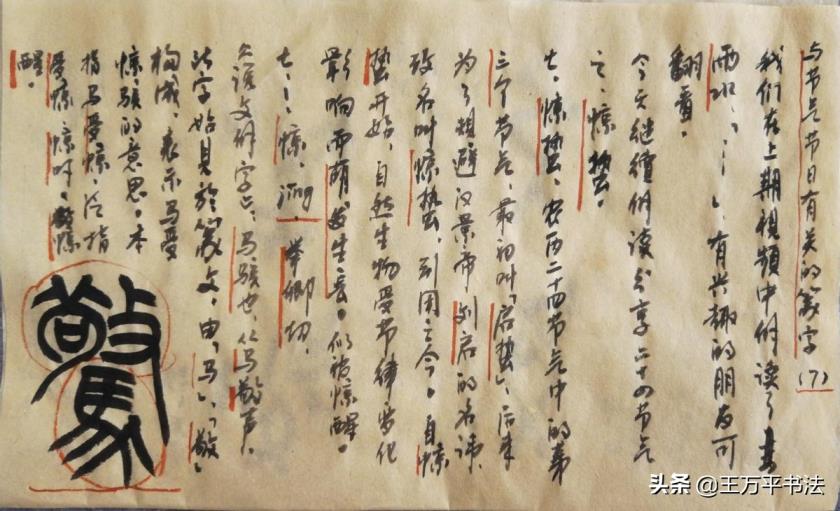 与节气节日有关的篆字(7)
我们在上期视频中解读了
雨水,有兴趣的朋友可
翻看。
今天继续解读分享二十四节气
之,惊蛰。
七、惊蛰,农历二十四节气中的第
三个节气,最初叫「启蛰」,后来
为了规避汉景帝刘启的名讳,
改名叫惊蛰,引用至今。自惊
蛰开始,自然生物受节律变化
影响而萌发生长。仿彿惊醒。
七、1,惊,jīng,举卿切,
说文解字云,马骇也,从马敬声。
此字始见于篆文,由「马」、「敬」
构成,表示马受
惊骇的意思。本
指马受惊,泛指
受惊,惊吓,惊
醒。
驚
头条 @王万平书法